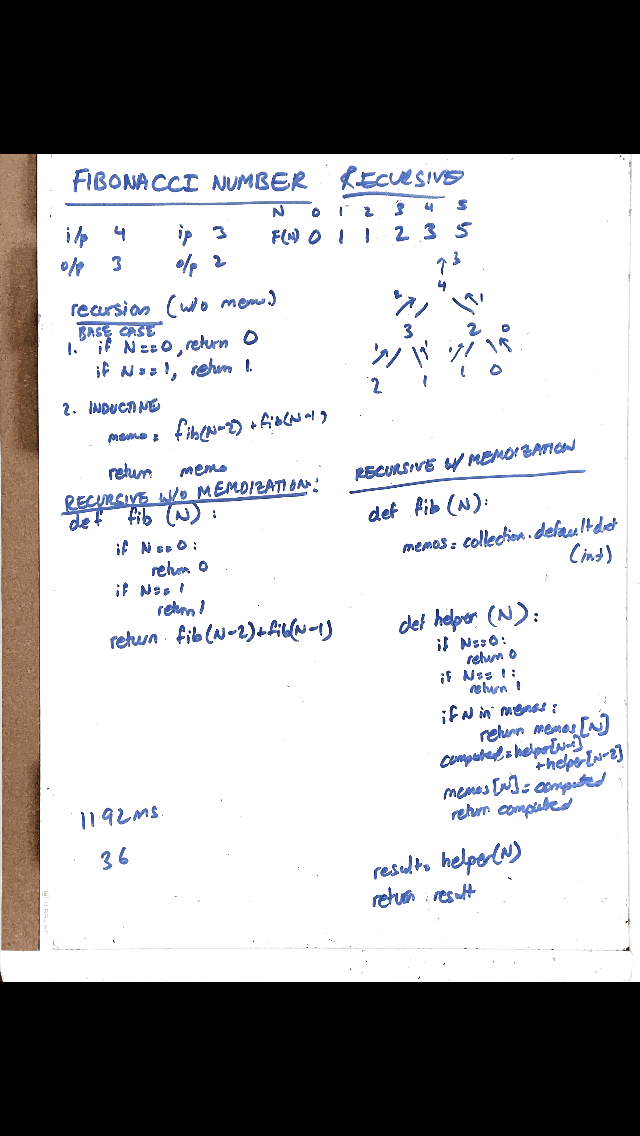 FIBONACCI NUMBER RECURSIVE
N 0 1 2 3 4 5
F(N) 0 1 1 2 3 5
i/p 4 ip 3
o/p 3 o/p 2
recursion (w/o memo)
BASE CASE
1. if N==0, return 0
if N==1, return 1.
2. INDUCTIVE
memo = fib(N-2) + fib(N-1)
return memo
3
4
2 1
3 2 0
1 1 1
2 1 1 0
RECURSIVE W/O MEMOIZATION:
def fib (N):
if N==0:
return 0
if N==1
return 1
return fib(N-2)+fib(N-1)
11.92ms
36
RECURSIVE W/ MEMOIZATION
def fib (N):
memos = collection.defaultdict
(int)
def helper (N):
if N==0:
return 0
if N==1:
return 1
if N in memos:
return memos[N]
computed = helper[N-1]
+helper[N-2]
memos[N] = computed
return computed
result = helper(N)
return result